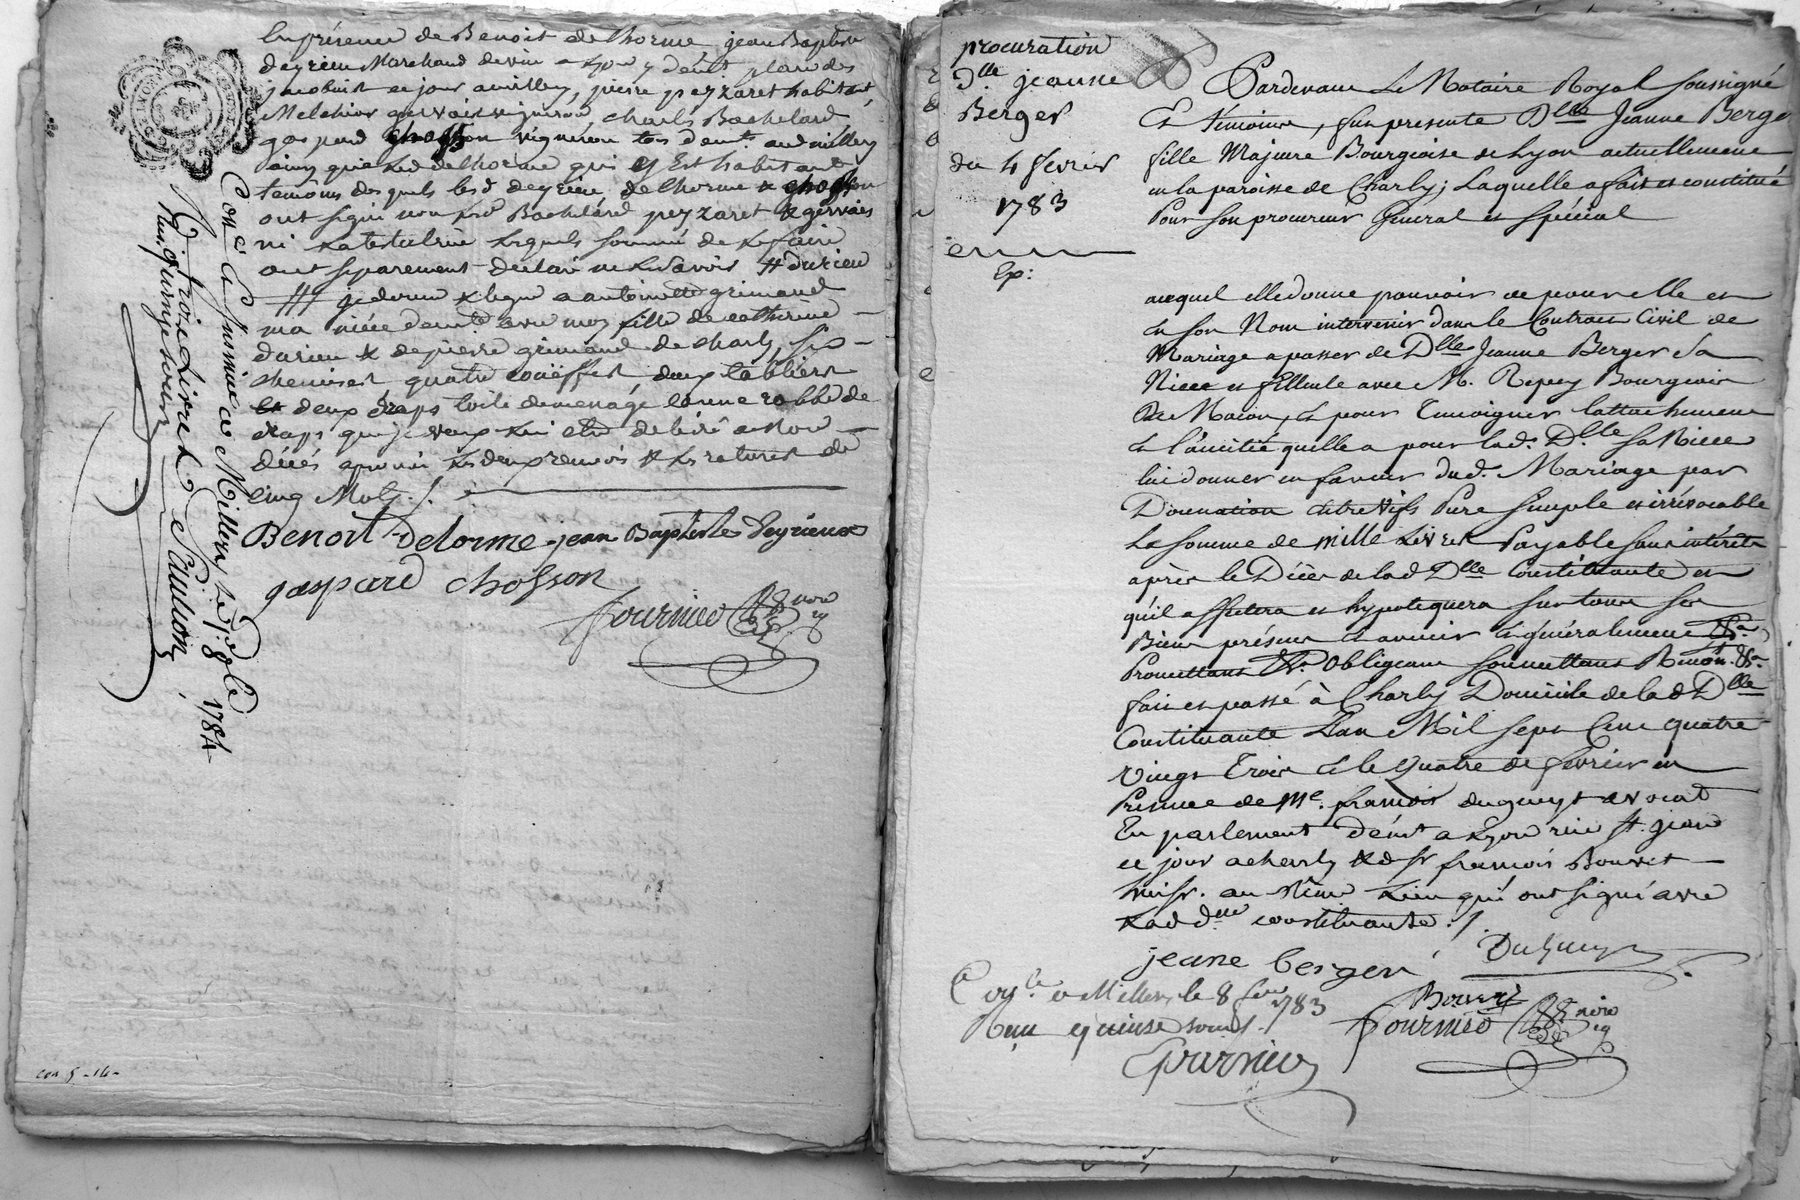 En présence de Benoit de lhorme, jean Baptiste
deyrieu Marchand de vin a Lyon y demt place des
jacobins ce jour a millery, pierre peyzaret habitant,
Melchior gervais vigneron, charles Bachelard
gaspard chosson vigneron tos demt. aud millery
ainsy que led delhorme qui y Est habitant
temoins desquels lesd deyrieu delhorme & chosson
ont signé non led Bachelard peyzaret & gervais
ni la testatrice lesquels sommé de le faire
ont séparement declaré ne le savoir # durieu
### je donne & legue a antoinette grimaud
ma niéce demte avec moy fille de catherine
durieu & de pierre grimaud de charly, six
chemises quatre coueffes deux tabliers
deux draps toile de menage & une robbe de
draps que je veux lui etre delivré a mon
décés aprouvé les deux renvois & les ratures de
cinq Mots ./.
Benoit Delorme jean Baptiste Deyrieux
gaspard chosson
fournier nore
Con.é & Insinué a Millery le 1.er 1784
Rd. trois Livres
plus quinze sous
con 5 - 14 -
procuration
D.lle jeanne
Berger
du 4 fevrier
1783
Ex:
Pardevant Le Notaire Royal soussigné
Et temoins, fut presente Dlle Jeanne Berger
fille Majeure Bourgeoise de Lyon actuellement
en la paroisse de Charly; Laquelle a fait et constitué
Pour son procureur General et spécial
auquel elle donne pouvoir de pour elle et
en son Nom intervenir dans le Contract Civil de
Mariage a passer de Dlle Jeanne Berger sa
Niece et filleule avec M. Repey Bourgeois
De Macon, et pour Temoigner l'attachement
et l'amitié quelle a pour lad. D.lle sa Niece
lui donner en faveur dud. Mariage par
Donnation entre Vifs Pure simple et irrévocable
La somme de mille Livres Payable sans intérêts
après le Décès de lad Dlle Constituante et
qu'il affectera et hypotequera sur tous ses
Biens présens et avenir et généralement &a
Promettant &a. Obligeant soumettant Renon. &a.
fait et passé à Charly Domicile de lad Dlle
Constituante L'an Mil sept Cent quatre
vingt Trois et le Quatre de fevrier en
Présence de me. francois dugueyt avocat
En parlement demt a Lyon rue st. jean
ce jour a charly & de sr francois Bouvet
huisr. au même Lieu qui ont signé avec
lad dlle constituante ./.
jeane berger Duguey
Bouvet
Con.lé a Millery le 8 fevr 1783
Reçu quinse sous
fournier nore